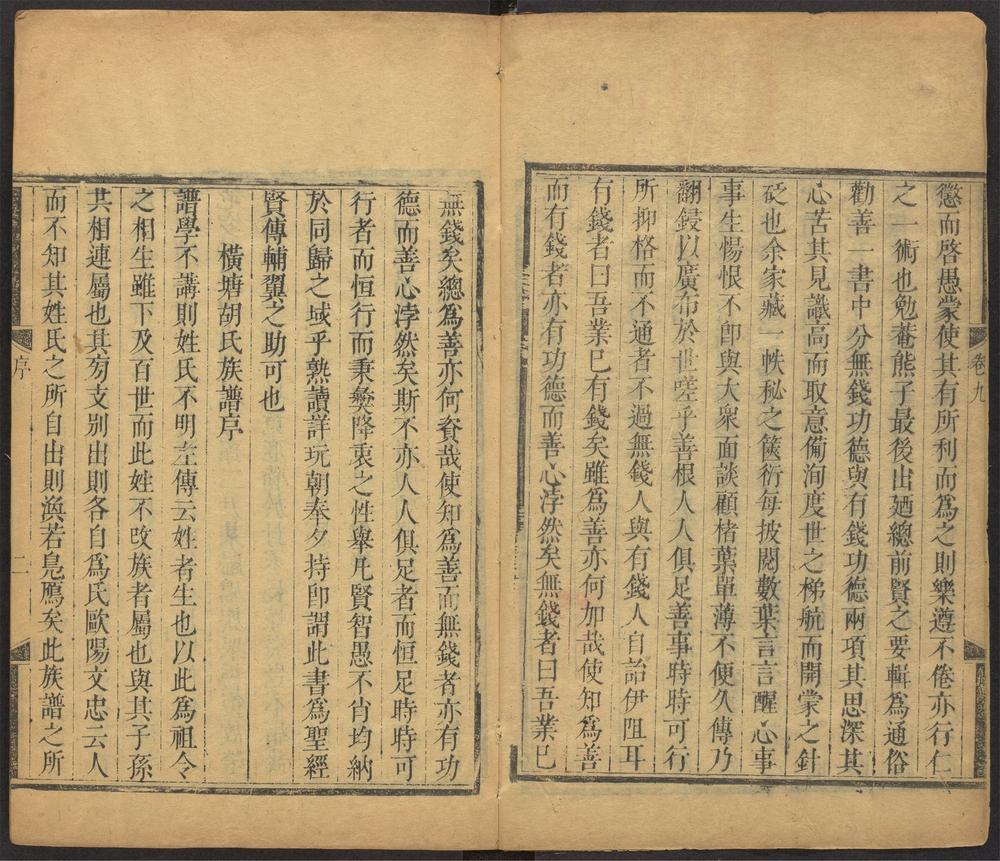 懲而啓愚蒙使其有所利而為之則樂遵不倦亦行仁
之一術也勉菴熊子最後出廼總前賢之要輯為通俗
勸善一書中分無錢功德與有錢功德兩項其思深其
心苦其見識高而取意備洵度世之梯航而開蒙之針
砭也余家藏一帙秘之篋衍每披閱數葉言言醒心事
事生惕恨不卽與大衆面談顧楮葉單薄不便久傳乃
翻鋟以廣布於世嗟乎善根人人俱足善事時時可行
所抑格而不通者不過無錢人與有錢人自詒伊阻耳
有錢者曰吾業已有錢矣雖為善亦何加哉使知為善
而有錢者亦有功德而善心浡然矣無錢者曰吾業已
卷九
無錢矣總為善亦何資哉使知為善而無錢者亦有功
德而善心浡然矣斯不亦人人俱足者而恒足時時可
行者而恒行而秉彝降衷之性舉凡賢智愚不肖均納
於同歸之域乎熟讀詳玩朝奉夕持卽謂此書為聖經
賢傳輔翼之助可也
橫塘胡氏族譜序
譜學不講則姓氏不明左傳云姓者生也以此為祖令
之相生雖下及百世而此姓不改族者屬也與其子孫
共相連屬也其旁支别出則各自為氏歐陽文忠云人
而不知其姓氏之所自出則渙若鳧鴈矣此族譜之所
序
二